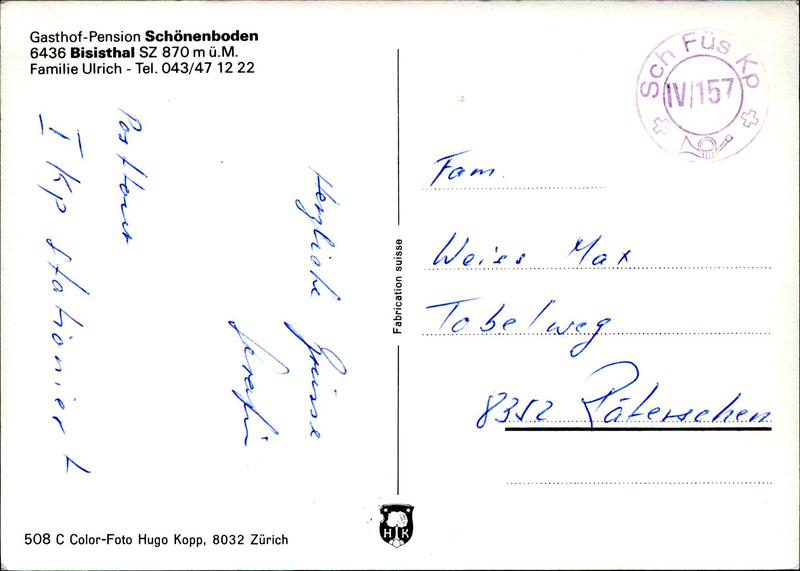 Gasthof-Pension Schönenboden
6436 Bisisthal SZ 870 m ü.M.
Familie Ulrich - Tel. 043/47 12 22
Sch Füs Kp
IV/157
Herzliche Grüsse
Serafin
I Kp stationiert
Fam.
Weiss Max
Tobelweg
8352 Räterschen
Fabrication suisse
HK
508 C Color-Foto Hugo Kopp, 8032 Zürich